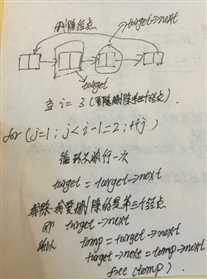 删除结点
target->next
target
当 i = 3 (要删除第三个结点)
for (j=1; j<i-1=2; ++j)
循环只执行一次
target = target->next
要删除的是第三个结点
即 target->next
所以 temp = target->next
target->next = temp->next
free (temp).